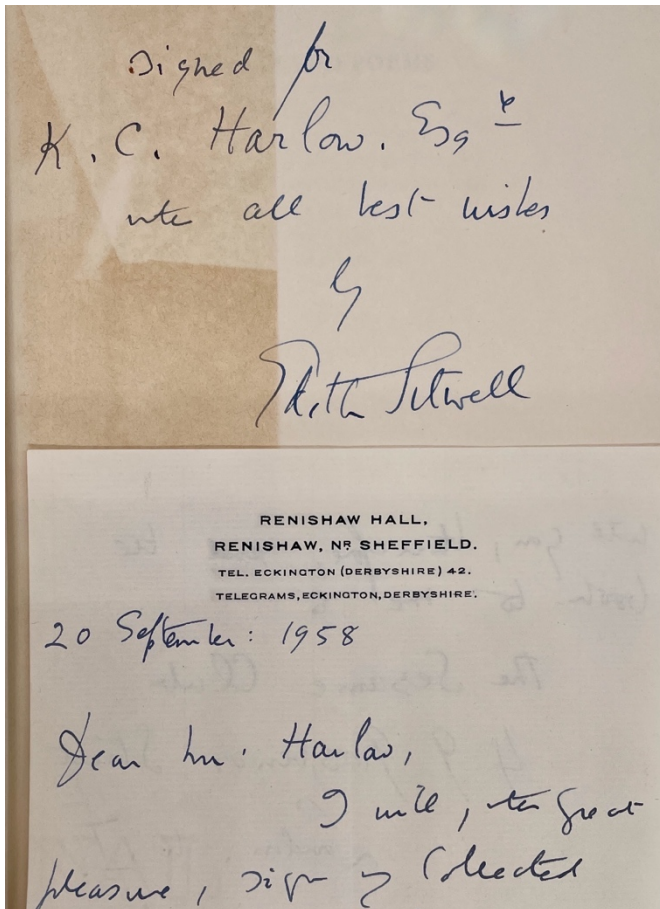 Signed for
K. C. Harlow. Esqre
with all best wishes
by
Edith Sitwell
RENISHAW HALL,
RENISHAW, NR SHEFFIELD.
TEL. ECKINGTON (DERBYSHIRE) 42.
TELEGRAMS, ECKINGTON, DERBYSHIRE.
20 September: 1958
Dear Mr. Harlow,
I will, with great
pleasure, sign my Collected